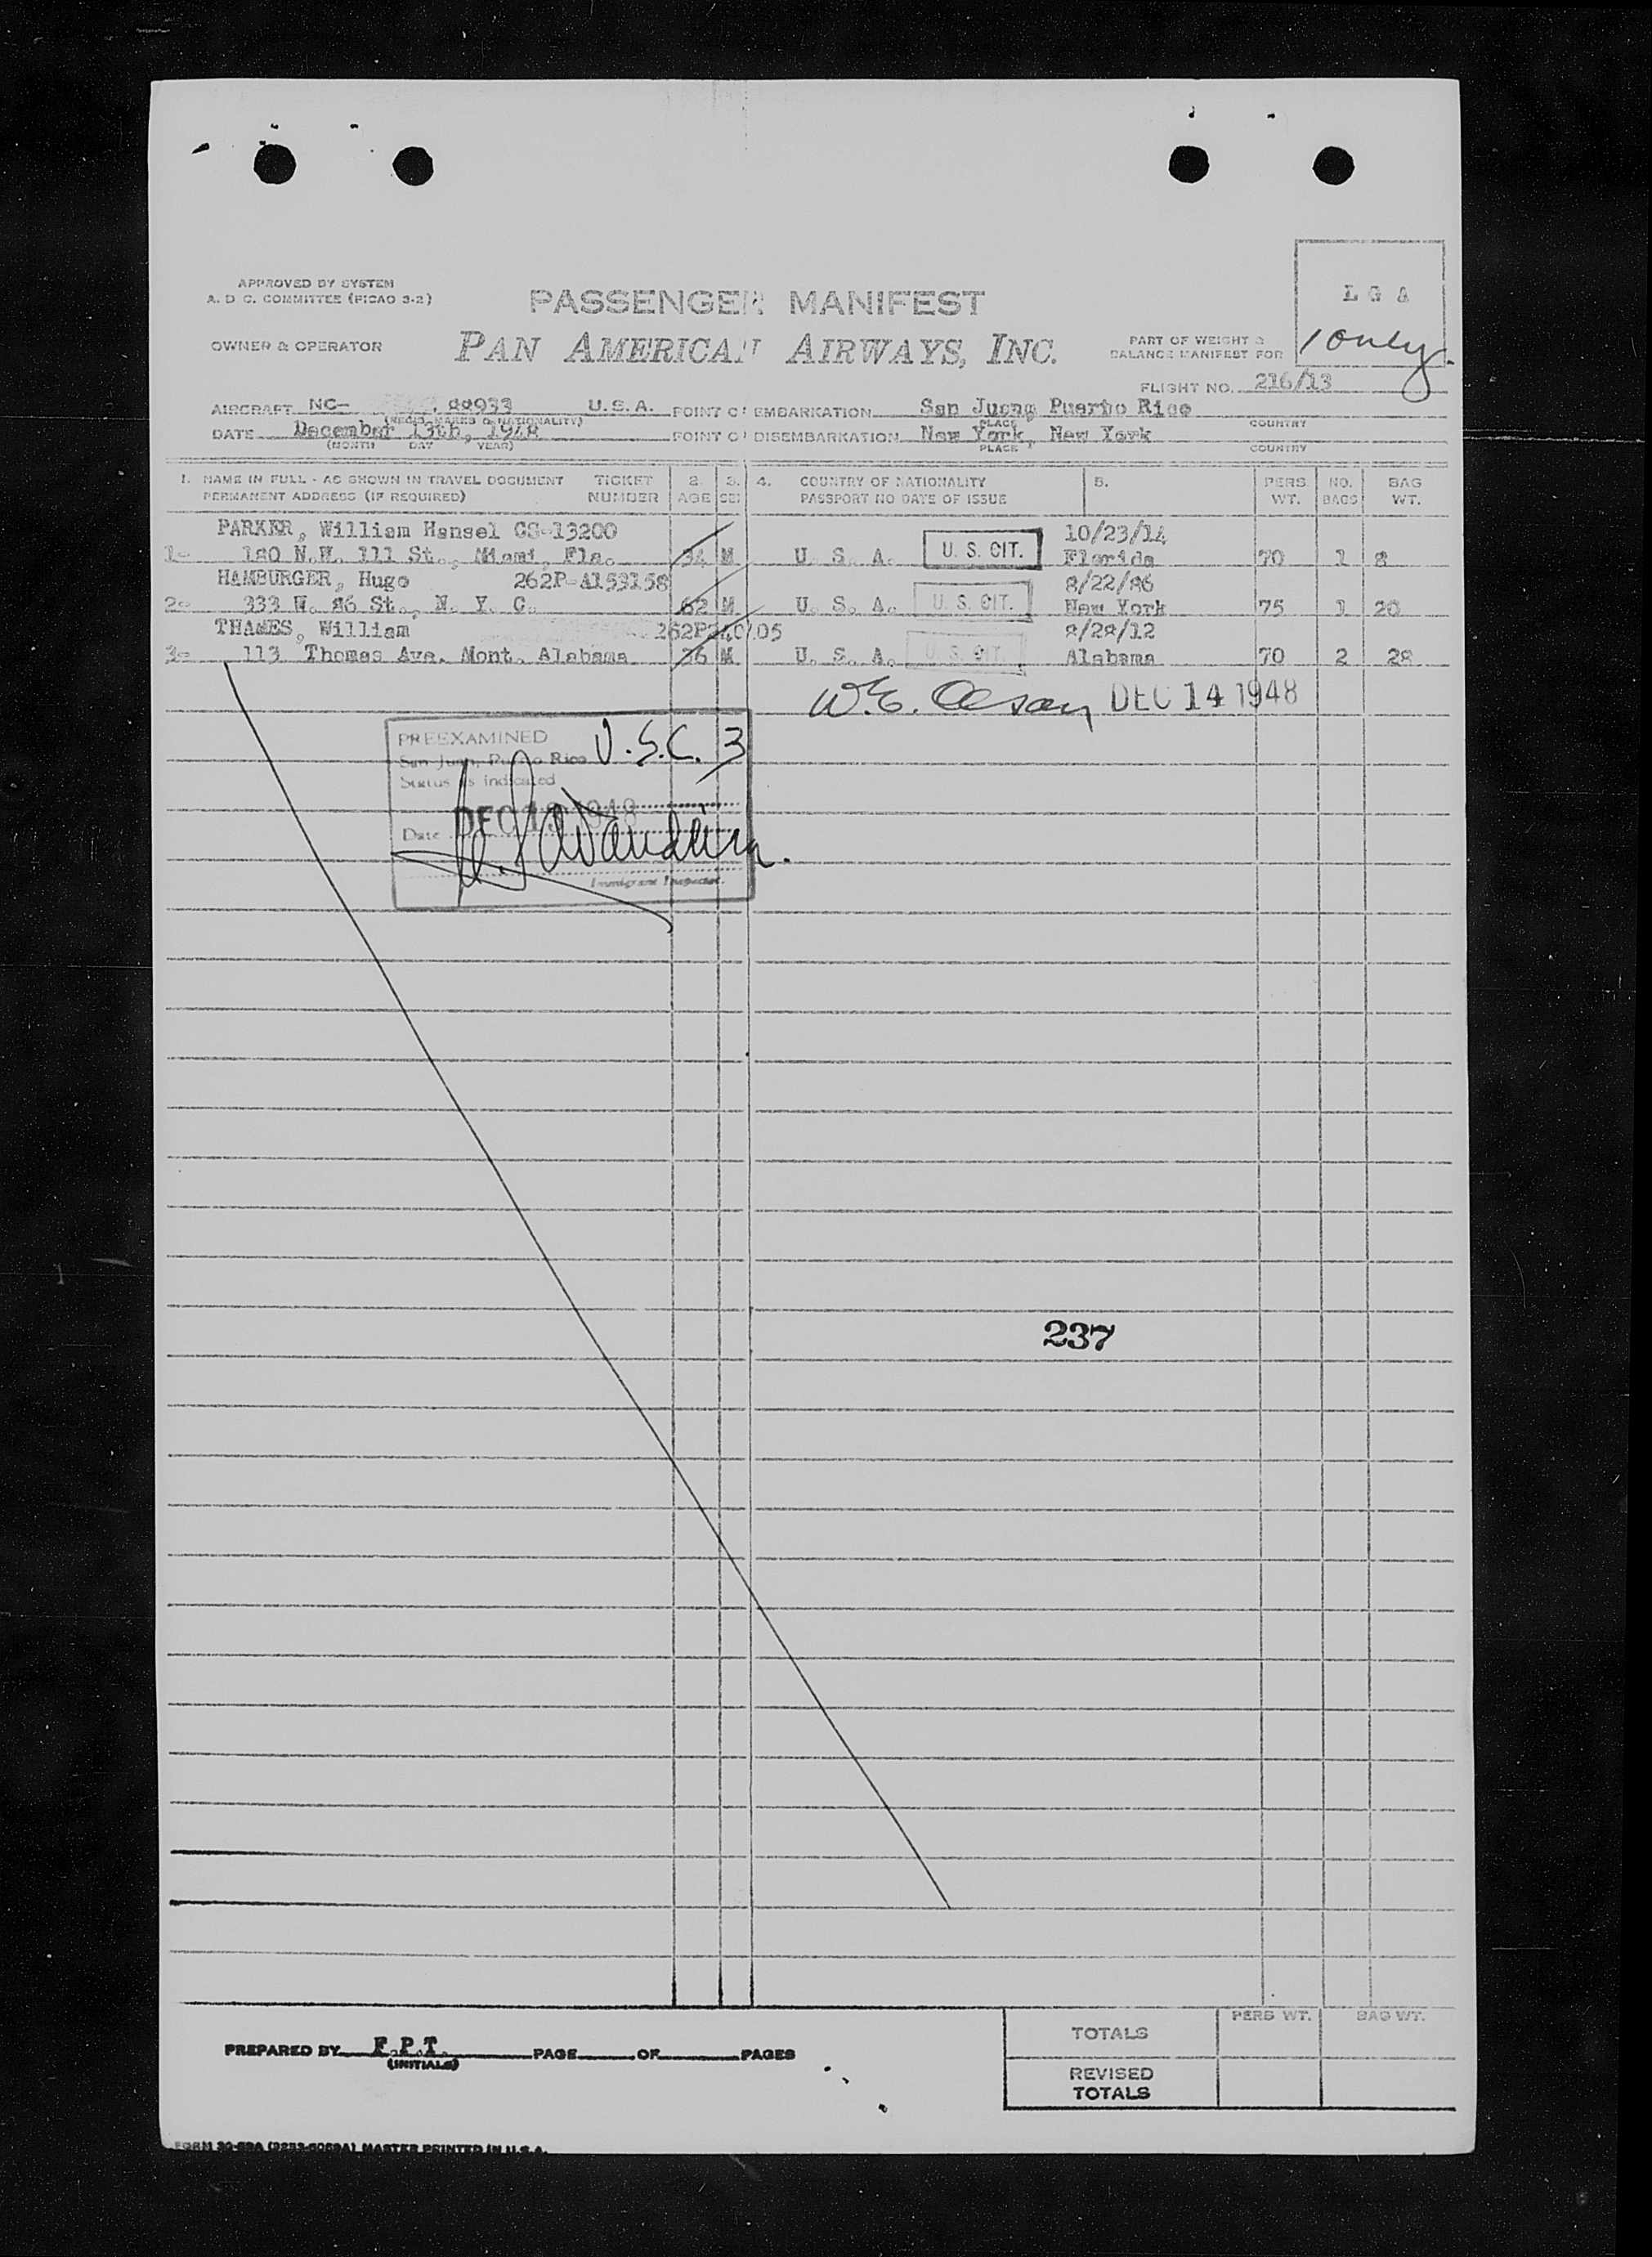 APPROVED BY SYSTEM
A. D C. COMMITTEE (PICAO 3-2)
PASSENGER MANIFEST
L G A
1 only.
OWNER & OPERATOR
PAN AMERICAN AIRWAYS, INC.
PART OF WEIGHT &
BALANCE MANIFEST FOR
FLIGHT NO. 216/13
AIRCRAFT NC- 88933 U. S. A. POINT OF EMBARKATION San Juan, Puerto Rico
(REGIS. MARKS & NATIONALITY) PLACE COUNTRY
DATE December 13th, 1948 POINT OF DISEMBARKATION New York, New York
(MONTH DAY YEAR) PLACE COUNTRY
1. NAME IN FULL - AS SHOWN IN TRAVEL DOCUMENT TICKET 2. 3. 4. COUNTRY OF NATIONALITY 5. PERS. NO. BAG
PERMANENT ADDRESS (IF REQUIRED) NUMBER AGE SEX PASSPORT NO DATE OF ISSUE WT. BAGS WT.
PARKER, William Hansel CS-13200 10/23/14
1- 180 N.W. 111 St., Miami, Fla. 34 M U. S. A. U. S. CIT. Florida 70 1 8
HAMBURGER, Hugo 262P-A153158 8/22/86
2- 333 W. 86 St., N. Y. C. 62 M U. S. A. U. S. CIT. New York 75 1 20
THAMES, William 8/28/12
3- 113 Thomas Ave. Mont. Alabama 36 M U. S. A. U. S. CIT. Alabama 70 2 28
W.E. Olson DEC 14 1948
PREEXAMINED U.S.C. 3
San Juan, Puerto Rico
Status as indicated
Date DEC 13 1948
Immigrant Inspector.
237
PERS WT. BAG WT.
TOTALS
PREPARED BY F.P.T. PAGE OF PAGES
(INITIALS)
REVISED
TOTALS
FORM 30-69A (9253-6069A) MASTER PRINTED IN U.S.A.